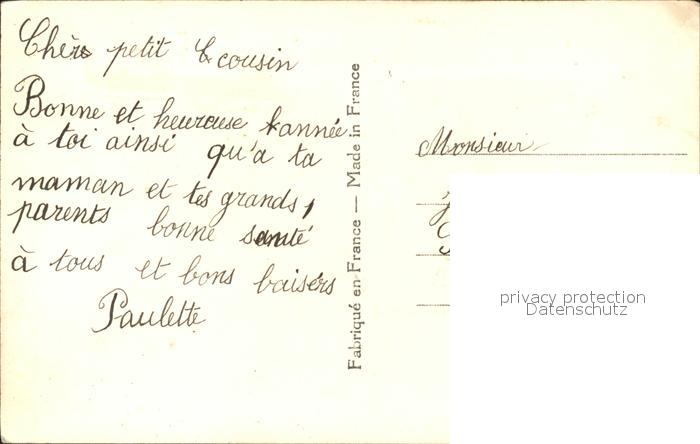 Chèrs petit cousin
Bonne et heureuse année
à toi ainsi qu'a ta
maman et tes grands,
parents bonne santé
à tous et bons baisers
Paulette
Fabriqué en France — Made in France
Monsieur
privacy protection
Datenschutz